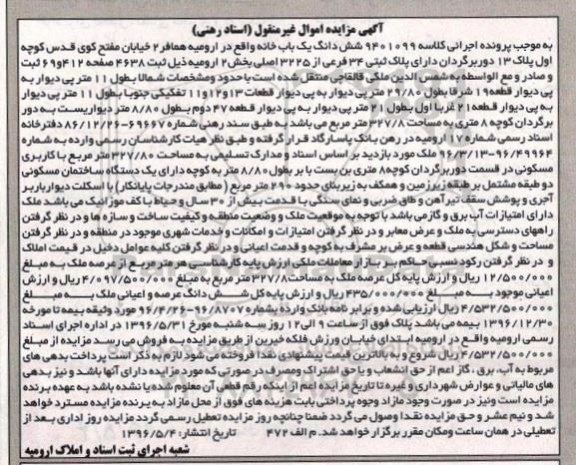 آگهی مزایده اموال غیرمنقول (اسناد رهنی)
به موجب پرونده اجرائی کلاسه ۹۴۰۱۰۹۹ شش دانگ یک باب خانه واقع در ارومیه همافر ۲ خیابان مفتح کوی قدس کوچه
اول پلاک ۱۳ دوربرگردان دارای پلاک ثبتی ۳۴ فرعی از ۳۲۲۵ اصلی بخش ۲ ارومیه ذیل ثبت ۴۶۳۸ صفحه ۴۱۲ و ۶۹ ثبت
و صادر و مع الواسطه به شمس الدین ملکی قالقاچی منتقل شده است با حدود و مشخصات شمالا بطول ۱۱ متر پی دیوار به
پی دیوار قطعه ۱۹ شرقا بطول ۲۹/۸۰ متر پی دیوار به پی دیوار قطعات ۱۳ و ۱۲ و ۱۱ تفکیکی جنوبا بطول ۱۱ متر پی دیوار
به پی دیوار قطعه ۲۱ غربا اول بطول ۲۱ متر پی دیوار به پی دیوار قطعه ۴۷ دوم بطول ۸/۸۰ متر دیواریست به دور
برگردان کوچه ۸ متری به مساحت ۳۲۷/۸ متر مربع می باشد به طبق سند رهنی شماره ۶۹۶۶۷-۸۶/۱۲/۲۶ دفترخانه
اسناد رسمی شماره ۱۷ ارومیه در رهن بانک پاسارگاد قرار گرفته و طبق نظر هیات کارشناسان رسمی وارده به شماره
۹۶/۴۹۹۶۴-۹۶/۳/۱۳ ملک مورد بازدید بر اساس اسناد و مدارک تسلیمی به مساحت ۳۲۷/۸۰ متر مربع با کاربری
مسکونی در قسمت دوربرگردان کوچه ۸ متری بن بست با بر بطول ۸/۸۰ متر به کوچه دارای یک دستگاه ساختمان مسکونی
دو طبقه مشتمل بر طبقه زیرزمین و همکف به زیربنای حدود ۲۹۰ متر مربع (مطابق مندرجات پایانکار) با اسکلت دیوار باربر
آجری و پوشش سقف تیرآهن و طاق ضربی و نمای سنگی با قدمت بیش از ۳۰ سال و حیاط با کف موزائیک می باشد ملک
دارای امتیازات آب برق و گاز می باشد با توجه به موقعیت ملک و وضعیت منطقه و کیفیت ساخت و سازه ها و در نظر گرفتن
راههای دسترسی به ملک و عرض معابر و در نظر گرفتن امتیازات و امکانات و خدمات شهری موجود در منطقه و در نظر گرفتن
مساحت و شکل هندسی قطعه و عرض بر مشرف به کوچه و قدمت اعیانی و در نظر گرفتن کلیه عوامل دخیل در قیمت املاک
و در نظر گرفتن رکود نسبی حاکم بر بازار معاملات ملکی ارزش پایه کارشناسی هر متر مربع از عرصه ملک به مبلغ
۱۲/۵۰۰/۰۰۰ ریال و ارزش پایه کل عرصه ملک به مساحت ۳۲۷/۸ متر مربع به مبلغ ۴/۰۹۷/۵۰۰/۰۰۰ ریال و ارزش
اعیانی موجود به مبلغ ۴۳۵/۰۰۰/۰۰۰ ریال و ارزش پایه کل شش دانگ عرصه و اعیانی ملک به مبلغ
۴/۵۳۲/۵۰۰/۰۰۰ ریال ارزیابی شده و برابر نامه بانک وارده بشماره ۹۶/۸۷۰۷-۹۶/۴/۲۶ مورد وثیقه بیمه تا مورخه
۱۳۹۶/۱۲/۳۰ بیمه می باشد پلاک فوق از ساعت ۹ الی ۱۲ روز سه شنبه مورخ ۱۳۹۶/۵/۳۱ در اداره اجرای اسناد
رسمی ارومیه واقع در ارومیه ابتدای خیابان ورزش فلکه خیرین از طریق مزایده به فروش می رسد مزایده از مبلغ
۴/۵۳۲/۵۰۰/۰۰۰ ریال شروع و به بالاترین قیمت پیشنهادی نقدا فروخته می شود لازم به ذکر است پرداخت بدهی های
مربوط به آب، برق، گاز اعم از حق انشعاب و یا حق اشتراک و مصرف در صورتی که مورد مزایده دارای آنها باشد و نیز بدهی
های مالیاتی و عوارض شهرداری و غیره تا تاریخ مزایده اعم از اینکه رقم قطعی آن معلوم شده یا نشده باشد به عهده برنده
مزایده است ونیز در صورت وجود مازاد وجوه پرداختی بابت هزینه های فوق از محل مازاد به برنده مزایده مسترد خواهد
شد و نیم عشر و حق مزایده نقدا وصول می گردد ضمنا چنانچه روز مزایده تعطیل رسمی گردد مزایده روز اداری بعد از
تعطیلی در همان ساعت ومکان مقرر برگزار خواهد شد. م الف ۴۷۲ تاریخ انتشار: ۱۳۹۶/۵/۴
شعبه اجرای ثبت اسناد و املاک ارومیه